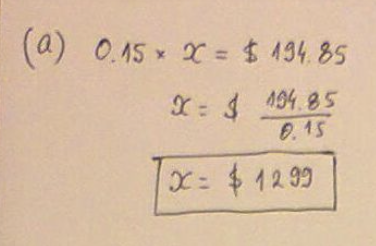 (a) 0.15 × x = $ 194.85
x = $ 194.85/0.15
x = $ 1299